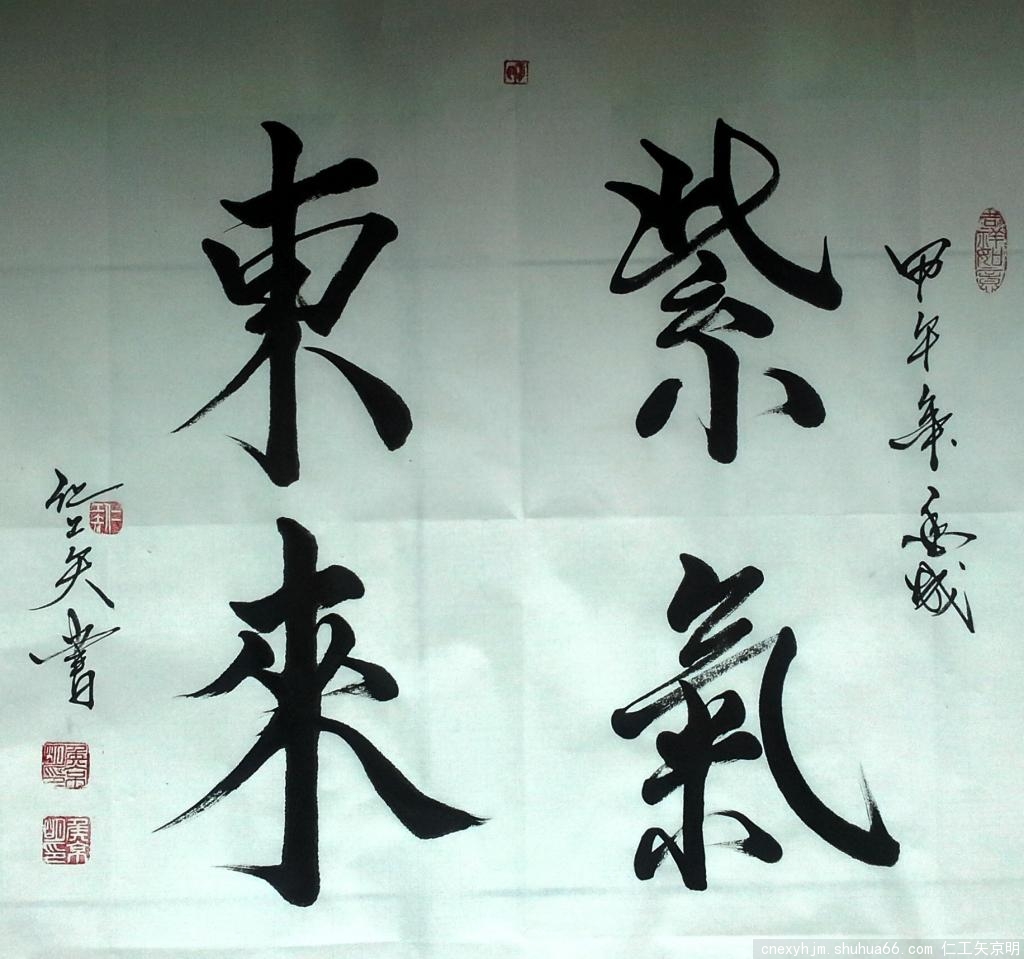 紫氣
東來
甲午年秋城
仁工矢書
吉祥如意
cnexyhjm.shuhua66.com 仁工矢京明